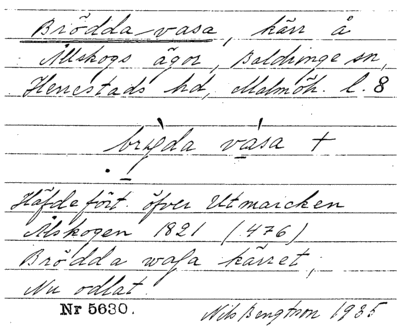 Brödda vasa, kärr å
Allskogs ägor, Baldringe sn,
Herrestads hd, Malmöh. l. 8
bryda vasa +
Häfdefört. öfver Utmarcken
Alskogen 1821 (476)
Brödda wasa kärret,
Nu odlat.
Nr 5630. Nils Bengtson 1935